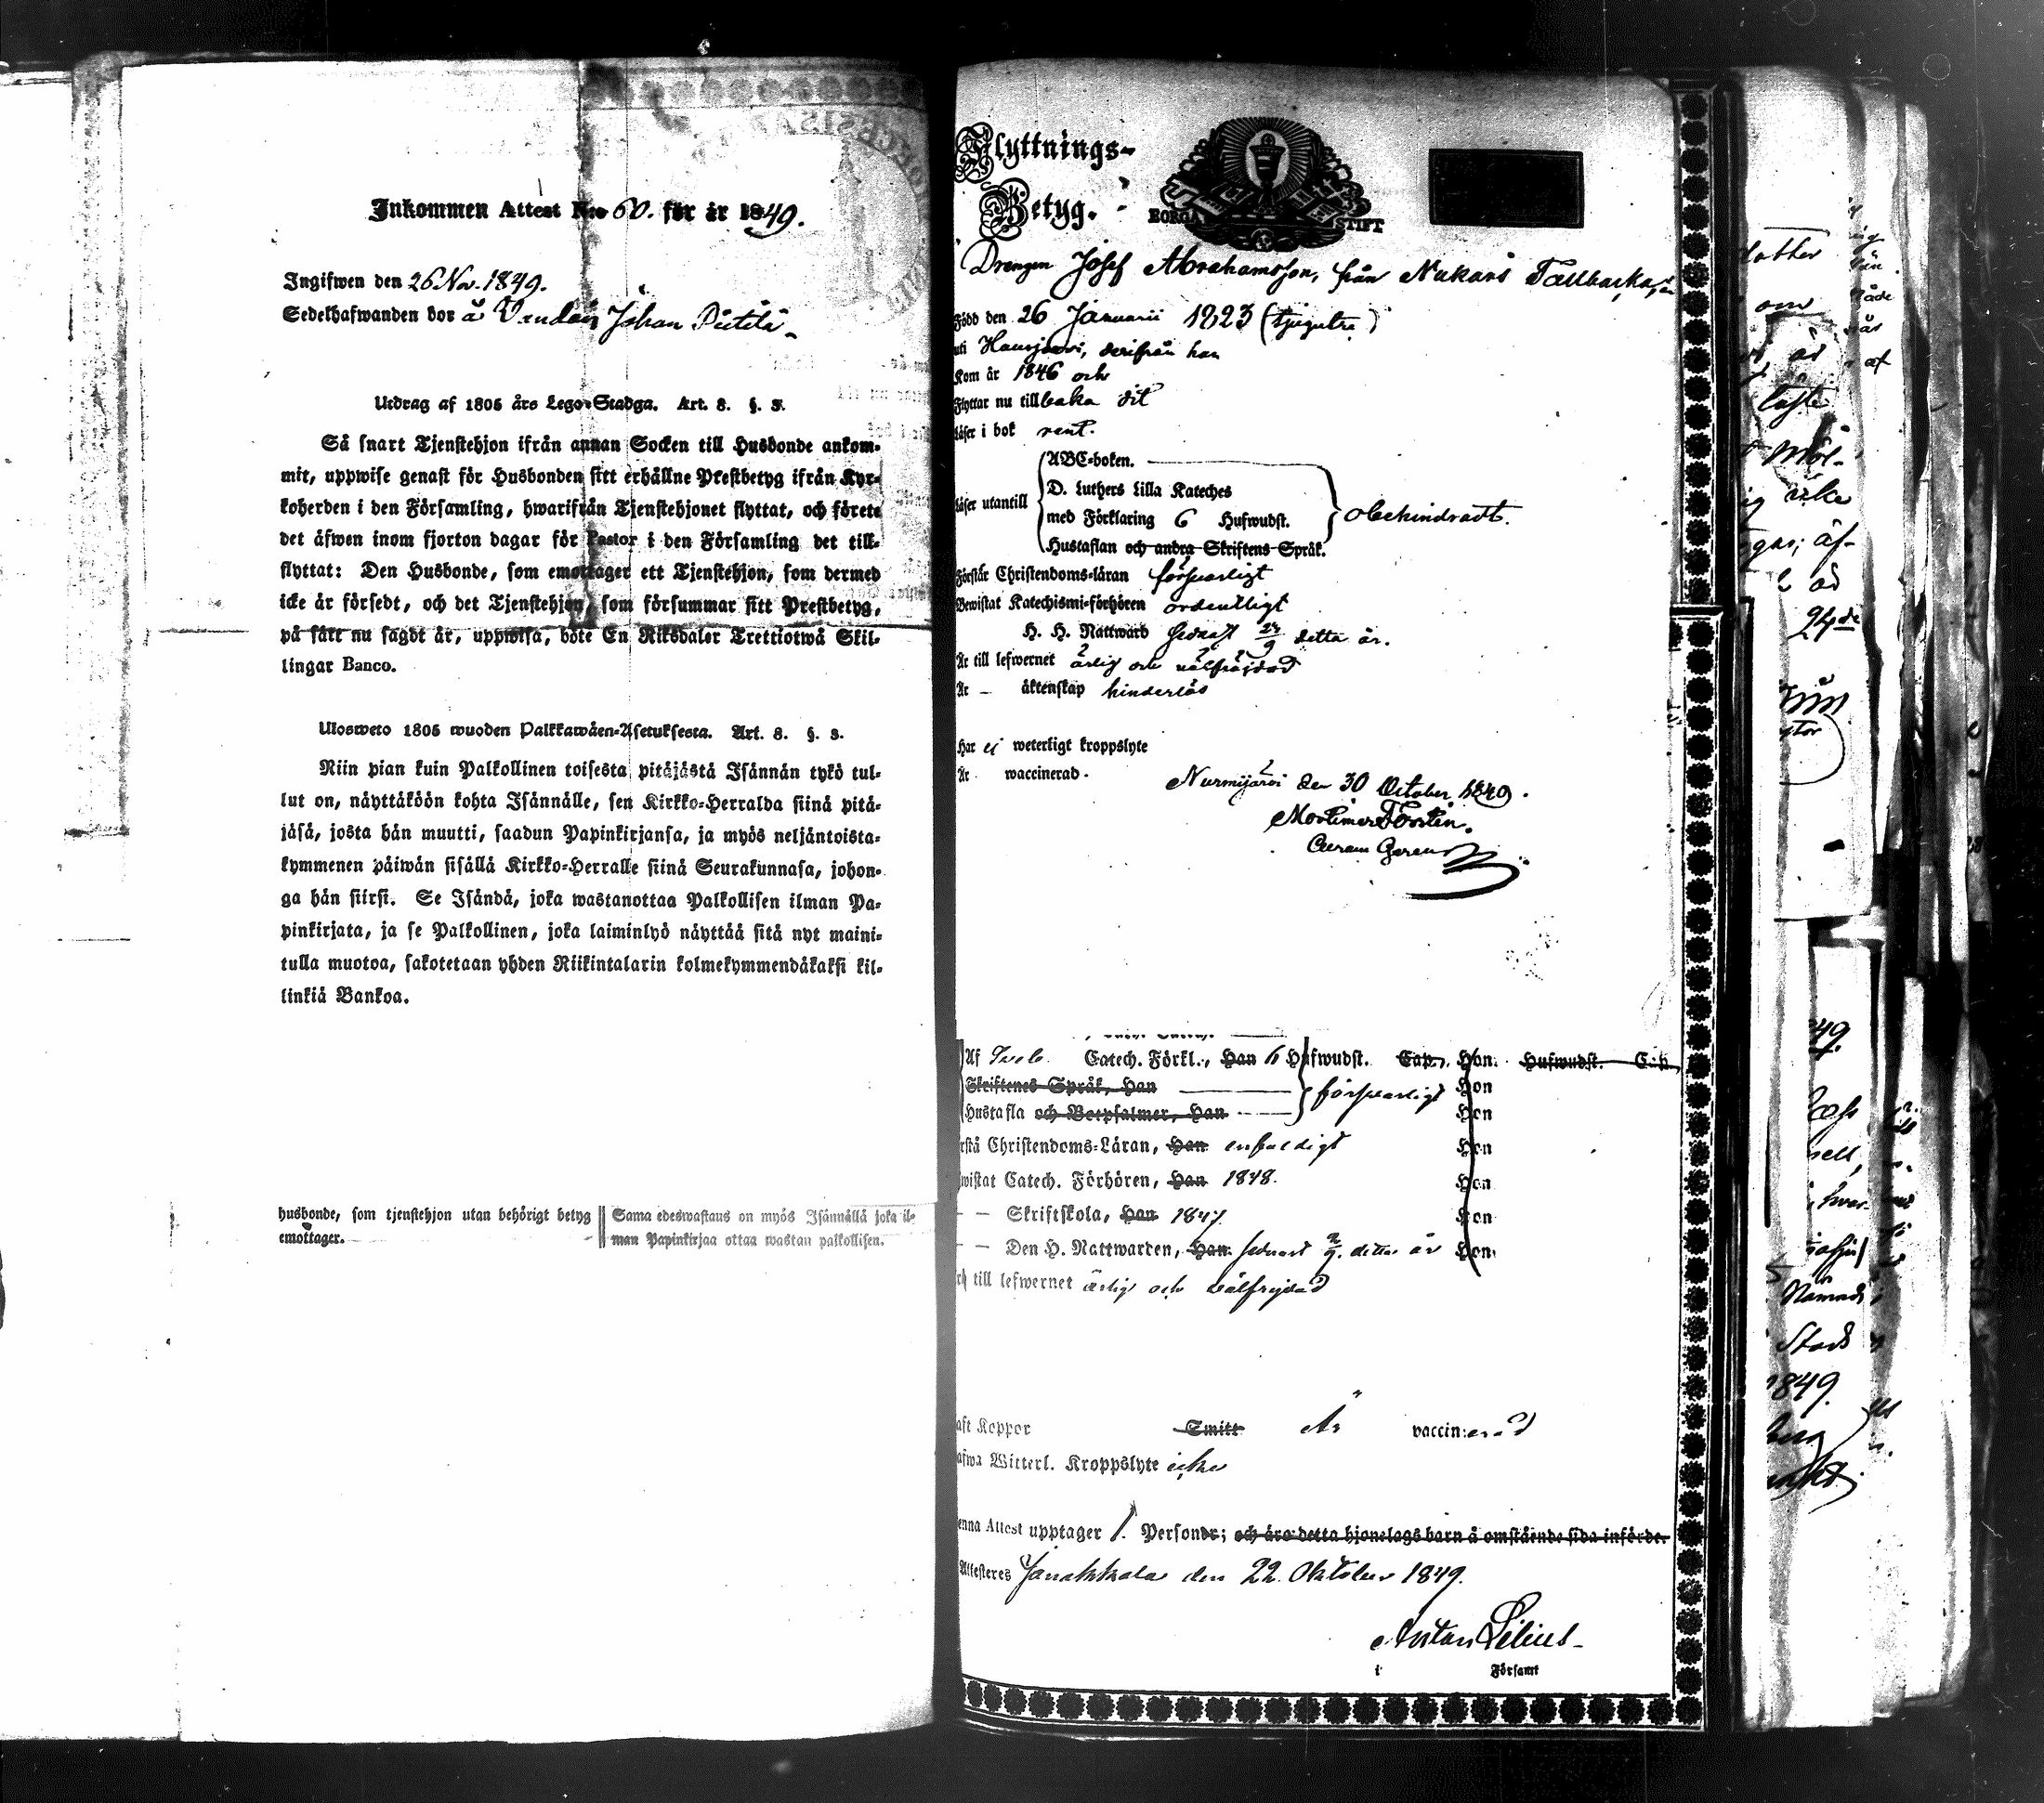 Inkommen Attest N:o 60. för år 1849.
Ingifwen den 26 Nov. 1849.
Sedelhafwanden bor å Vandais Johan Pietilä
Utdrag af 1805 års Lego-Stadga. Art. 8. §. 3.
Så snart Tjenstehjon ifrån annan Socken till Husbonde ankom-
mit, uppwise genast för Husbonden sitt erhållne Prestbetyg ifrån Kyr-
koherden i den Församling, hwarifrån Tjenstehjonet flyttat, och förete
det äfwen inom fjorton dagar för Pastor i den Församling det till-
flyttat: Den Husbonde, som emottager ett Tjenstehjon, som dermed
icke är försedt, och det Tjenstehjon, som försummar sitt Prestbetyg,
på sätt nu sagdt är, uppwisa, böte En Riksdaler Trettiotwå Skil-
lingar Banco.
Ulosweto 1805 wuoden Palkkawäen-Asetuksesta. Art. 8. §. 3.
Niin pian kuin Palkollinen toisesta pitäjästä Isännän tykö tul-
lut on, näyttäköön kohta Isännälle, sen Kirkko-Herralda siinä pitä-
jäsä, josta hän muutti, saadun Papinkirjansa, ja myös neljäntoista-
kymmenen päiwän sisällä Kirkko-Herralle siinä Seurakunnasa, johon-
ga hän siirsi. Se Isändä, joka wastanottaa Palkollisen ilman Pa-
pinkirjata, ja se Palkollinen, joka laiminlyö näyttää sitä nyt maini-
tulla muotoa, sakotetaan yhden Riikintalarin kolmekymmendäkaksi kil-
linkiä Bankoa.
husbonde, som tjenstehjon utan behörigt betyg
emottager.
Sama edeswastaus on myös Isännällä joka il-
man Papinkirjaa ottaa wastan palkollisen.
Flyttnings-
Betyg.
BORGÅ STIFT
Drengen Josef Abrahamsson, från Nukars Tallbacka,
Född den 26 Januarii 1823 (tjugutre)
uti Hausjärvi, derifrån han
Kom år 1846 och
Flyttar nu tillbaka dit
Läser i bok rent.
ABC-boken.
Läser utantill
D. Luthers Lilla Kateches
med Förklaring 6 Hufwudst.
obehindradt.
Hustaflan och andra Skriftens Språk.
Förstår Christendoms-läran försvarligt
Bewistat Katechismi-förhören ordentligt
H. H. Nattward sednast 23/9 detta år.
Är till lefwernet ärlig och välfrejdad
Är äktenskap hinderlös
Har ej weterligt kroppslyte
Är waccinerad.
Nurmijärvi den 30 October 1849.
Mortimer Forstén.
Curam Gerens
Af Sveb. Catech. Förkl., Han 6 Hufwudst. Cap., Hon. Hufwudst. Cap.
Skriftenes Språk, Han Hon
försvarligt
Hustafla och Botpsalmer, Han Hon
rstå Christendoms-Läran, Han enfaldigt Hon
wistat Catech. Förhören, Han 1848. Hon
Skriftskola, Han 1847 Hon
Den H. Nattwarden, Han sednast detta år Hon
till lefwernet ärlig och välfrejdad
aft Koppor Smitt Är vaccinerad
afwa Witterl. Kroppslyte icke
enna Attest upptager 1. Personer; och äro detta hjonelags barn å omstående sida införde.
Attesteres Janakkala den 22 Oktober 1849.
Anton Lilius
i Församl